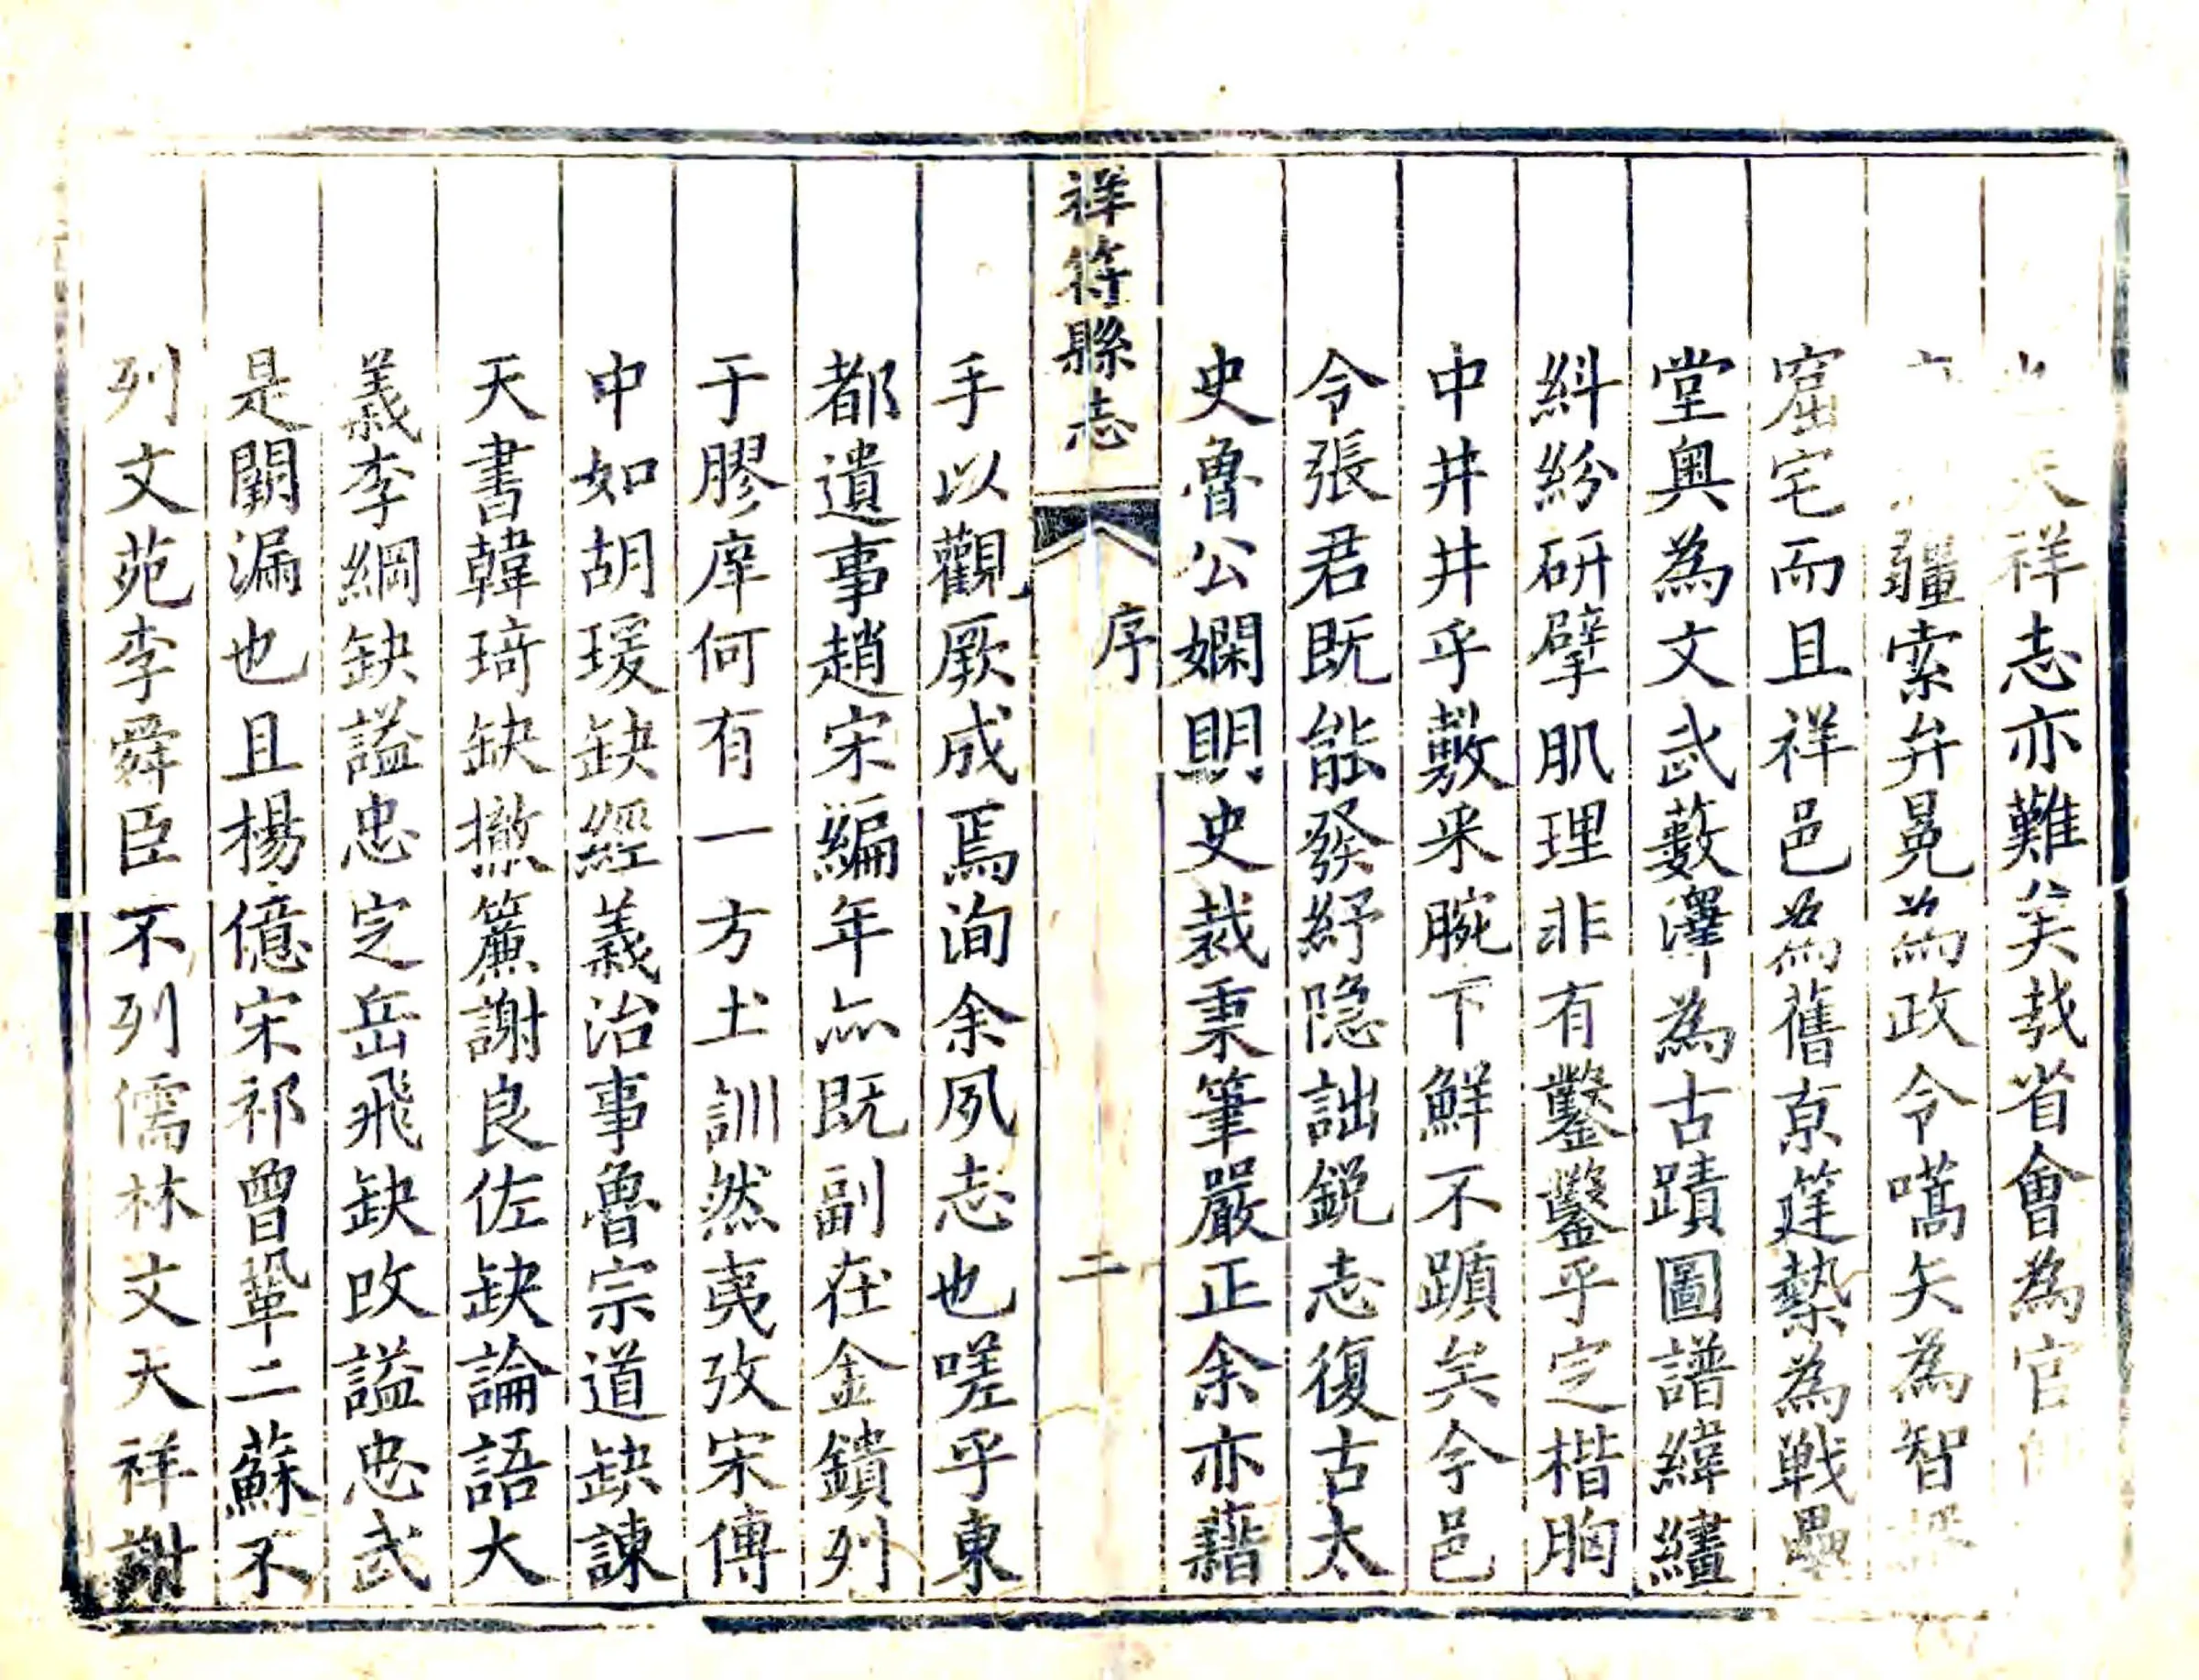 天祥志亦難矣哉省會為官
疆索弁冕為政令嚆矢為智
窟宅而且祥邑為舊京莛槷為戰壘
堂奧為文武藪澤為古蹟圖譜緯繣
糾紛研擘肌理非有鑿鑿乎定楷胸
中井井乎敷采腕下鮮不躓矣今邑
令張君既能發紓隐詘銳志復古太
史魯公嫻明史裁秉筆嚴正余亦藉
祥符縣志
序
二
手以觀厥成焉洵余夙志也嗟乎東
都遺事趙宋編年亦既副在金鐀列
于膠庠何有一方土訓然夷攷宋傳
中如胡瑗缺經義治事魯宗道缺諫
天書韓琦缺撤簾謝良佐缺論語大
義李綱缺謚忠定岳飛缺改謚忠武
是闕漏也且楊億宋祁曾鞏二蘇不
列文苑李舜臣不列儒林文天祥謝